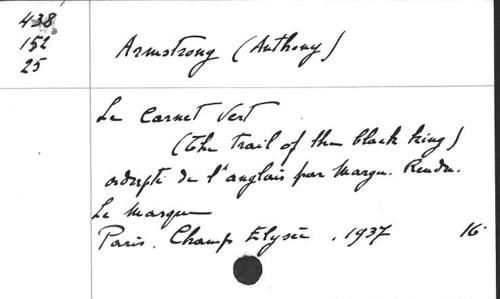 438
152
25
Armstrong (Anthony)
Le Carnet Vert
(The trail of the black king)
adapté de l'anglais par Margu. Rendu.
Le Masque
Paris. Champs Elysée, 1937 16°